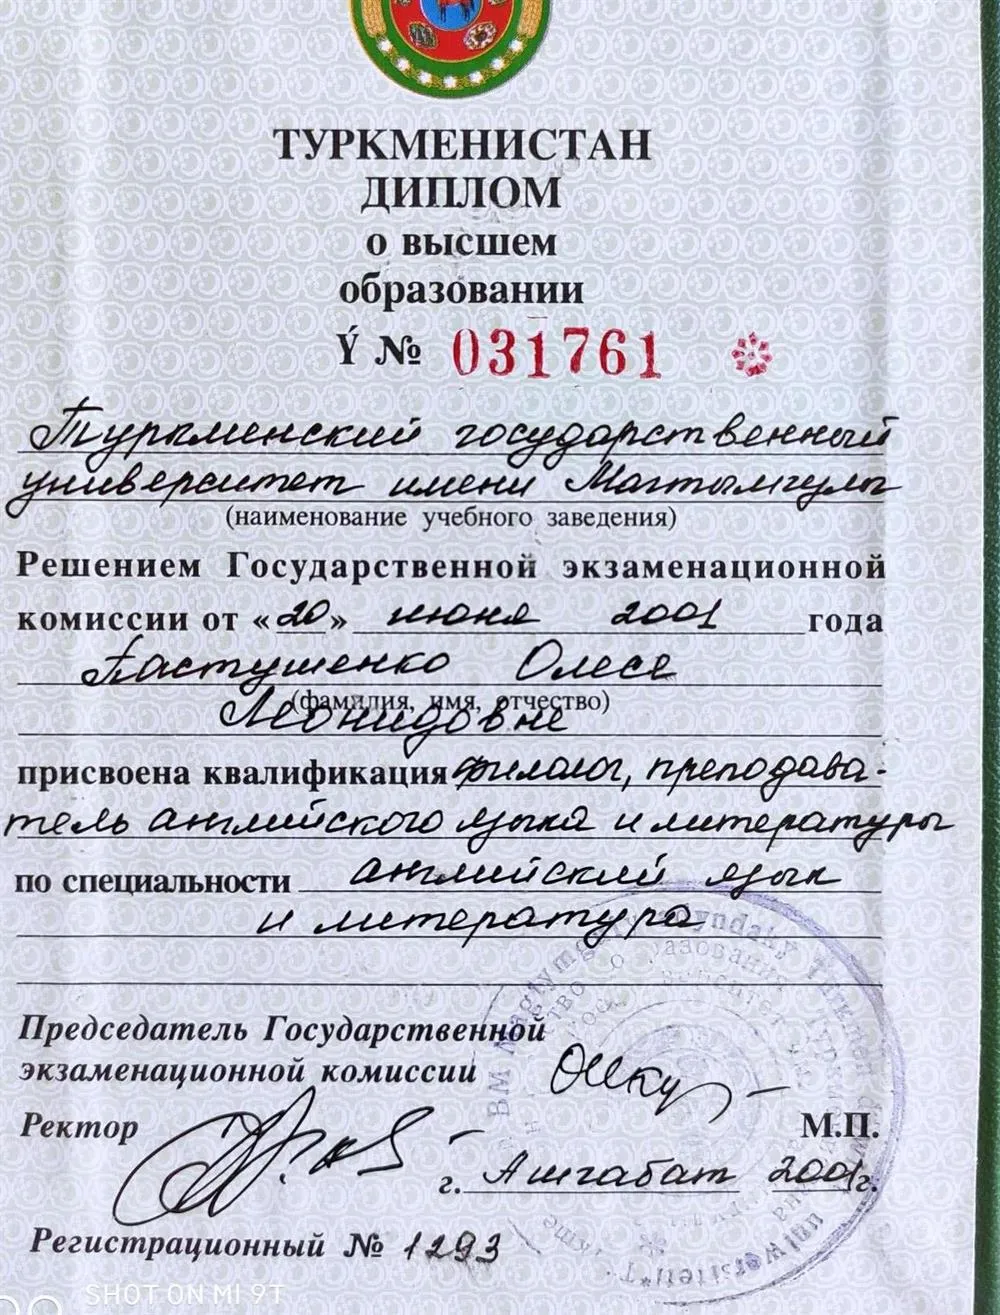 ТУРКМЕНИСТАН
ДИПЛОМ
о высшем
образовании
Ý № 031761
Туркменский государственный
университет имени Магтымгулы
(наименование учебного заведения)
Решением Государственной экзаменационной
комиссии от «20» июня 2001 года
Пастушенко Олесе
(фамилия, имя, отчество)
Леонидовне
присвоена квалификация филолог, преподава-
тель английского языка и литературы
по специальности английский язык
и литература
Председатель Государственной
экзаменационной комиссии
Ректор
М.П.
г. Ашгабат 2001г.
Регистрационный № 1293
SHOT ON MI 9T